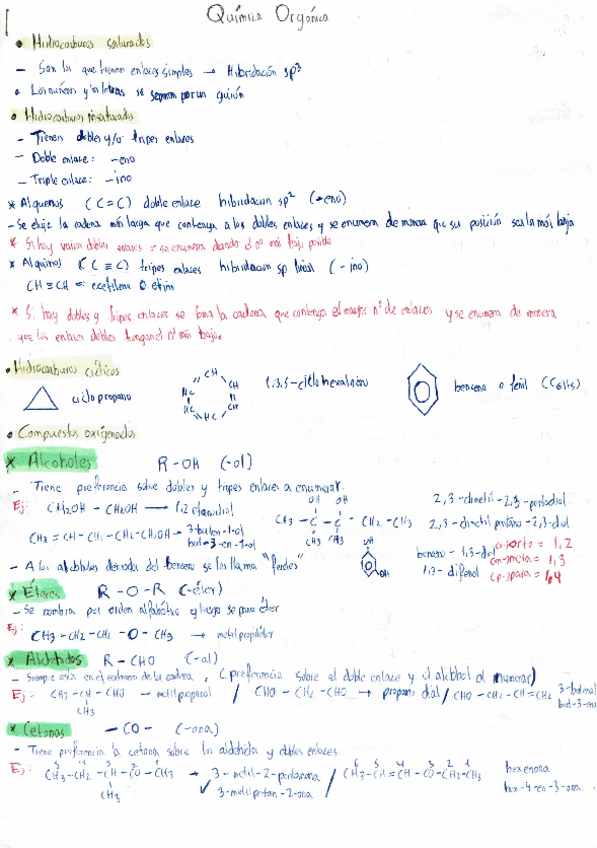 Química Orgánica
• Hidrocarburos saturados
- Son los que tienen enlaces simples → Hibridación sp³
• Los números y las letras se separan por un guión
• Hidrocarburos insaturados
- Tienen dobles y/o tripes enlaces
- Doble enlace: -eno
- Triple enlace: -ino
* Alquenos (C=C) doble enlace hibridacion sp² (-eno)
- Se elije la cadena más larga que contenga a los dobles enlaces y se enumera de manera que su posición sea la más baja
* Si hay varios dobles enlaces = se enumera dando el nº más bajo posible
* Alquinos (C≡C) tripes enlaces hibridacion sp lineal (-ino)
CH≡CH = acetileno o etino
* Si hay dobles y tripes enlaces se toma la cadena que contenga el mayor nº de enlaces y se enumera de manera
que los enlaces dobles tengan el nº más bajo.
• Hidrocarburos cíclicos
ciclo propano
CH
HC CH
HC CH
HC
1,3,5-ciclohexatrieno
benceno o fenil (C₆H₅)
• Compuestos oxigenados
* Alcoholes R-OH (-ol)
- Tiene preferencia sobre dobles y tripes enlaces a enumerar.
Ej: CH₂OH - CH₂OH → 1,2 etanodiol
CH₂=CH-CH₂-CH₂-OH → 3-buten-1-ol
but-3-en-1-ol
OH OH
CH₃-C-C-CH₂-CH₃
CH₃ CH₃
2,3-dimetil-2,3-pentadiol
2,3-dimetil pentano-2,3-diol
- A los alcoholes derivados del benceno se les llama "fenoles"
OH
OH
benceno-1,3-diol
1,3-difenol
(o-)orto = 1,2
(m-)meta = 1,3
(p-)para = 1,4
* Éteres R-O-R (-éter)
- Se nombra por orden alfabético y luego se pone éter
Ej: CH₃-CH₂-CH₂-O-CH₃ → metilpropiléter
* Aldehidos R-CHO (-al)
- Siempre están en el extremo de la cadena, (preferencia sobre el doble enlace y el alcohol al numerar)
Ej: CH₃-CH-CHO → metilpropanal / CHO-CH₂-CHO → propano dial / CHO-CH₂-CH=CH₂ 3-butenal
CH₃
but-3-enal
* Cetonas -CO- (-ona)
- Tiene preferencia la cetona sobre los aldehidos y dobles enlaces.
Ej: CH₃-CH₂-CH-CO-CH₃ → 3-metil-2-pentanona / CH₃-CH=CH-CO-CH₂-CH₃ hexenona
CH₃
3-metilpentan-2-ona
hex-4-en-3-ona